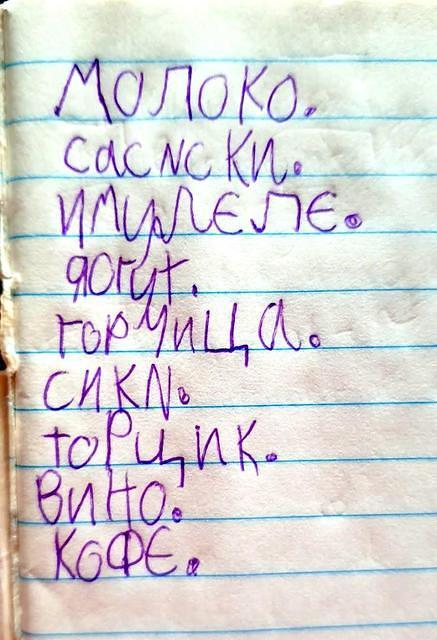 молоко.
сасиски.
имумєлє.
яогут.
горчица.
сики.
торщик.
вино.
кофє.